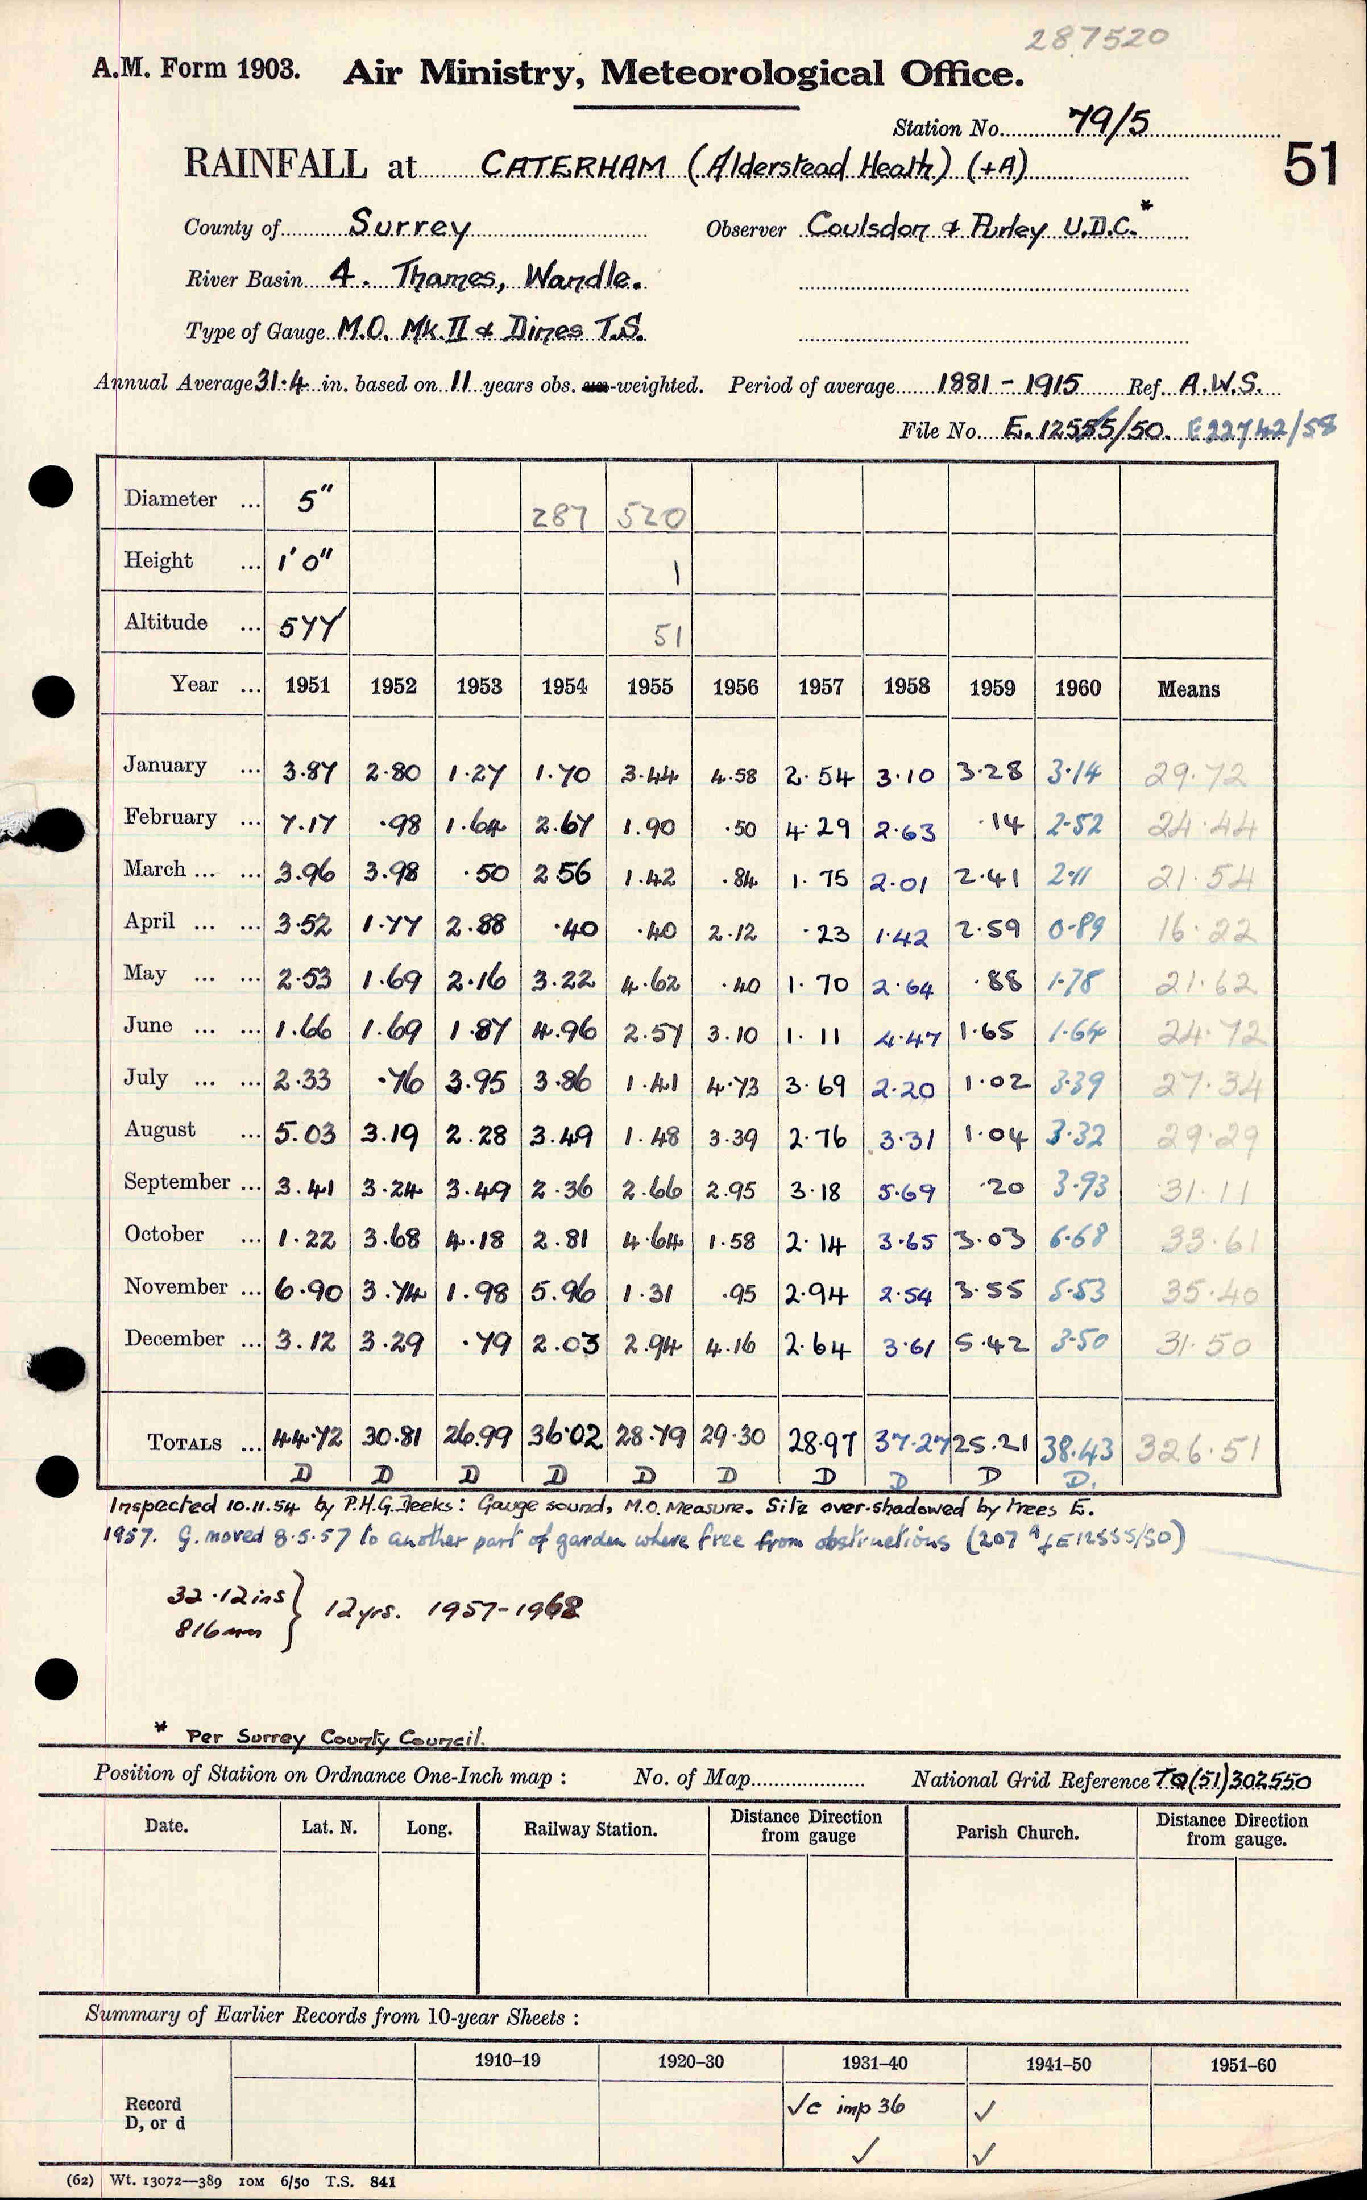 287520
A.M. Form 1903. Air Ministry, Meteorological Office.
Station No. 79/5
51
RAINFALL at CATERHAM (Alderstead Heath) (+A)
County of Surrey Observer Coulsdon & Purley U.D.C.*
River Basin 4. Thames, Wandle.
Type of Gauge M.O. Mk.II & Dines T.S.
Annual Average 31.4 in. based on 11 years obs. un-weighted. Period of average 1881 - 1915 Ref. A.W.S.
File No. E.12555/50. E22742/58
Diameter ... 5" 287 520
Height ... 1'0" 1
Altitude ... 577' 51
Year ... 1951 1952 1953 1954 1955 1956 1957 1958 1959 1960 Means
January ... 3.87 2.80 1.27 1.70 3.44 4.58 2.54 3.10 3.28 3.14 29.72
February ... 7.17 .98 1.64 2.67 1.90 .50 4.29 2.63 .14 2.52 24.44
March ... ... 3.96 3.98 .50 2 56 1.42 .84 1.75 2.01 2.41 2.11 21.54
April ... ... 3.52 1.77 2.88 .40 .40 2.12 .23 1.42 2.59 0.89 16.22
May ... ... 2.53 1.69 2.16 3.22 4.62 .40 1.70 2.64 .88 1.78 21.62
June ... ... 1.66 1.69 1.87 4.96 2.57 3.10 1.11 4.47 1.65 1.64 24.72
July ... ... 2.33 .76 3.95 3.86 1.41 4.73 3.69 2.20 1.02 3.39 27.34
August ... 5.03 3.19 2.28 3.49 1.48 3.39 2.76 3.31 1.04 3.32 29.29
September ... 3.41 3.24 3.49 2.36 2.66 2.95 3.18 5.69 .20 3.93 31.11
October ... 1.22 3.68 4.18 2.81 4.64 1.58 2.14 3.65 3.03 6.68 33.61
November ... 6.90 3.74 1.98 5.96 1.31 .95 2.94 2.54 3.55 5.53 35.40
December ... 3.12 3.29 .79 2.03 2.94 4.16 2.64 3.61 5.42 3.50 31.50
TOTALS ... 44.72 30.81 26.99 36.02 28.79 29.30 28.97 37.27 25.21 38.43 326.51
D D D D D D D D D D.
Inspected 10.11.54 by P.H.G. Deeks: Gauge sound, M.O. Measure. Site over-shadowed by trees E.
1957. G. moved 8.5.57 to another part of garden where free from obstructions (207 of E12555/50)
32.12 ins } 12 yrs. 1957-1968
816 mm
* Per Surrey County Council.
Position of Station on Ordnance One-Inch map : No. of Map National Grid Reference TQ(51)302550
Date. Lat. N. Long. Railway Station. Distance Direction from gauge Parish Church. Distance Direction from gauge.
Summary of Earlier Records from 10-year Sheets :
1910–19 1920–30 1931–40 1941–50 1951–60
Record D, or d √c imp 36 ✓
✓ ✓
(62) Wt. 13072—389 10M 6/50 T.S. 841